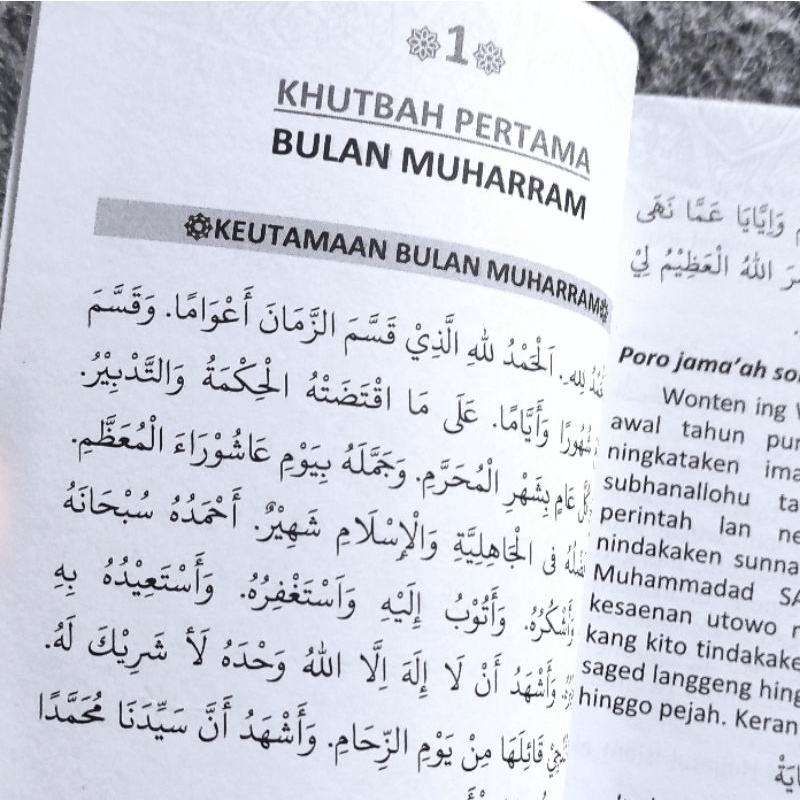 1
KHUTBAH PERTAMA
BULAN MUHARRAM
KEUTAMAAN BULAN MUHARRAM
لِلهِ. اَلْحَمْدُ لِلهِ الَّذِيْ قَسَّمَ الزَّمَانَ أَعْوَامًا. وَقَسَّمَ
شُهُوْرًا وَأَيَّامًا. عَلَى مَا اقْتَضَتْهُ الْحِكْمَةُ وَالتَّدْبِيْرُ.
عَامٍ بِشَهْرِ الْمُحَرَّمِ. وَجَمَّلَهُ بِيَوْمِ عَاشُوْرَاءَ الْمُعَظَّمِ.
فَضْلُهُ فِى الْجَاهِلِيَّةِ وَالْإِسْلَامِ شَهِيْرٌ. أَحْمَدُهُ سُبْحَانَهُ
وَأَشْكُرُهُ. وَأَتُوْبُ إِلَيْهِ وَاَسْتَغْفِرُهُ. وَأَسْتَعِيْذُهُ بِهِ
وَأَشْهَدُ أَنْ لَا إِلَهَ اِلَّا اللهُ وَحْدَهُ لَأ شَرِيْكَ لَهُ.
قَائِلَهَا مِنْ يَوْمِ الزِّحَامِ. وَأَشْهَدُ أَنَّ سَيِّدَنَا مُحَمَّدًا
وَاِيَّايَا عَمَّا نَهَى
اللهُ الْعَظِيْمُ لِيْ
Poro jama'ah
Wonten ing
awal tahun
ningkataken
subhanallohu
perintah lan
nindakaken
Muhammadad
kesaenan utowo
kang kito
saged langgeng
hinggo pejah.